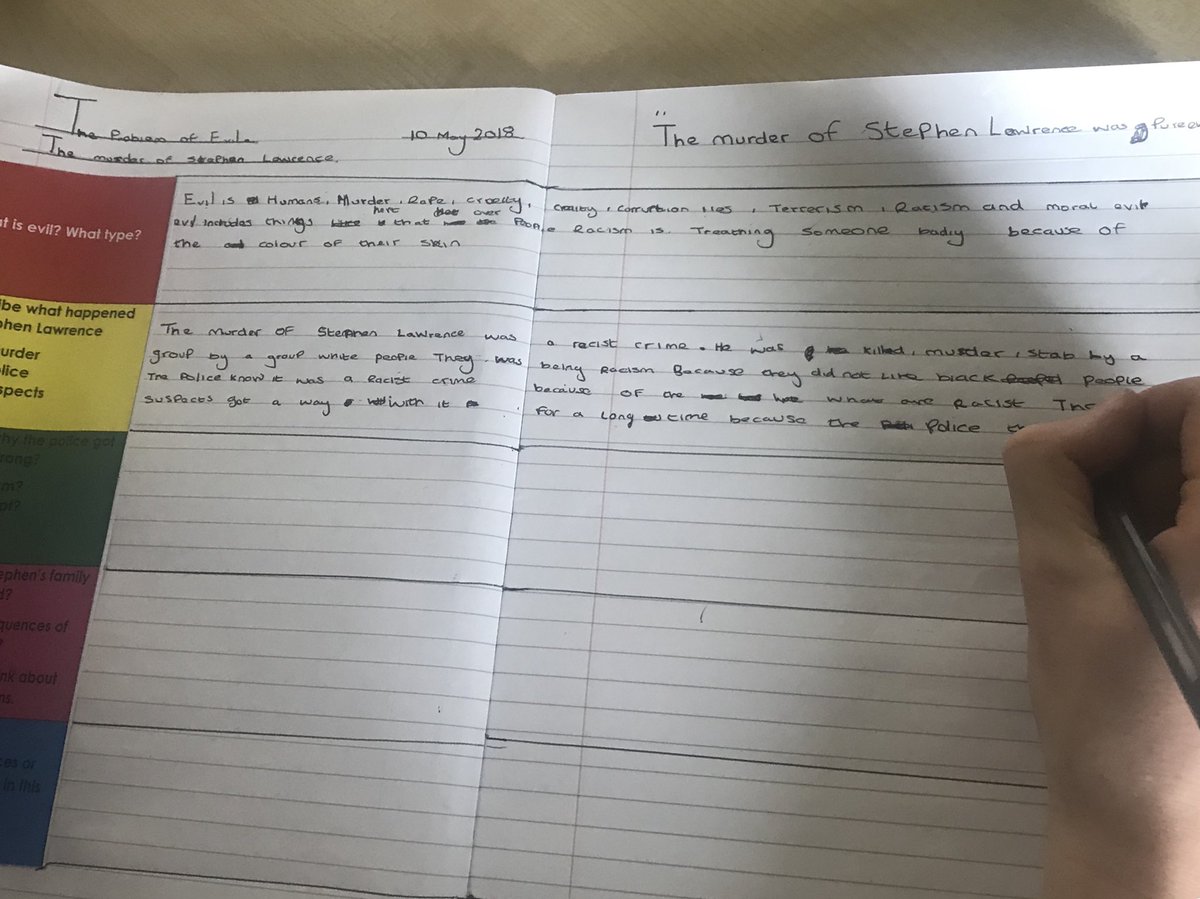 The Problem of Evil
10 May 2018
The murder of Stephen Lawrence.
"The murder of Stephen Lawrence was
t is evil? What type?
Evil is Humans, Murder, Rape, cruelty, cruelty, corruption lies, Terrerism, Racism and moral evil
evil includes things that hert over People Racism is Treathing Someone badly because of
the colour of their skin
ibe what happened
phen Lawrence
urder
lice
spects
The Murder of Stephen Lawrence was a racist crime. He was killed, murder, stab by a
group by a group white people They was being Racism Because they did not Like black people
The Police know it was a Racist crime because of the who are Racist The
suspacts got a way with it for a long time because the Police
hy the police got
rong?
m?
of?
ephen's family
d?
quences of
?
nk about
ns.
ces or
in this